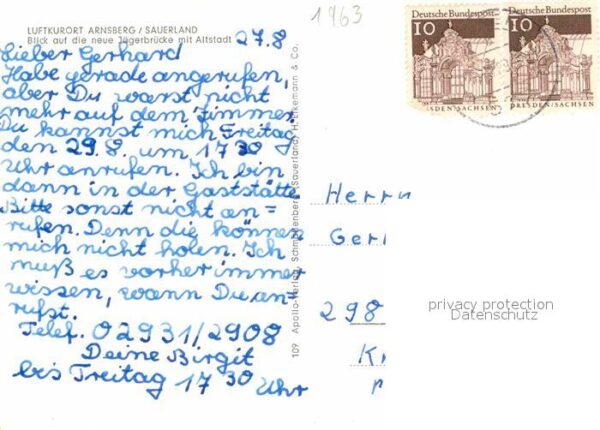 1963
LUFTKURORT ARNSBERG / SAUERLAND
Blick auf die neue Jägerbrücke mit Altstadt
27.8
Lieber Gerhard
Habe gerade angerufen,
aber Du warst nicht
mehr auf dem Zimmer.
Du kannst mich Freitag
den 29.8. um 17 30
Uhr anrufen. Ich bin
dann in der Gaststätte
Bitte sonst nicht an=
rufen. Denn die können
mich nicht holen. Ich
muß es vorher immer
wissen, wann Du an-
rufst.
Telef. 02931/2908
Deine Birgit
bis Freitag 17 30 Uhr
109 Apollo-Verlag, Sauerland: H. Erkemann & Co.
Deutsche Bundespost
10
SDEN/SACHSEN
Deutsche Bundespost
10
DRESDEN/SACHSEN
Herrn
Ger
298
K
privacy protection
Datenschutz